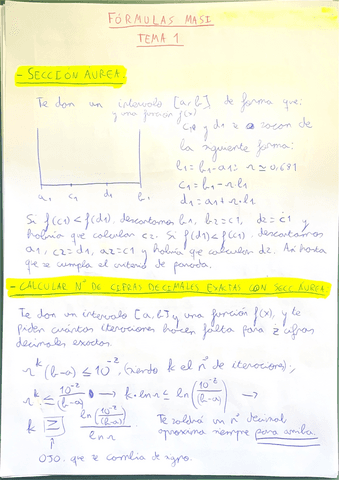 FÓRMULAS MASI
TEMA 1
- SECCIÓN AUREA.
Te dan un intervalo [a,b] de forma que:
y una función f(x)
c1 y d1 se sacan de
la siguiente forma:
l1 = b1 - a1 = r ≈ 0,681
c1 = b1 - r·l1
d1 = a1 + r·l1
a1 c1 d1 b1
Si f(c1) < f(d1), descartamos b1, b2 = c1, d2 = c1 y
habría que calcular c2. Si f(d1) < f(c1), descartamos
a1, c2 = d1, a2 = c1 y habría que calcular d2. Así hasta
que se cumpla el criterio de parada.
- CALCULAR Nº DE CIFRAS DECIMALES EXACTAS CON SECC AUREA
Te dan un intervalo [a,b] y una función f(x), y te
piden cuántas iteraciones hacen falta para z cifras
decimales exactas.
r^k (b-a) ≤ 10^-z, (siendo k el nº de iteraciones);
r^k ≤ 10^-z/(b-a) → k·ln r ≤ ln(10^-z/(b-a)) →
k ≥ ln(10^-z/(b-a))/ln r Te saldrá un nº decimal,
aproxima siempre para arriba.
OJO, que se cambia de signo.